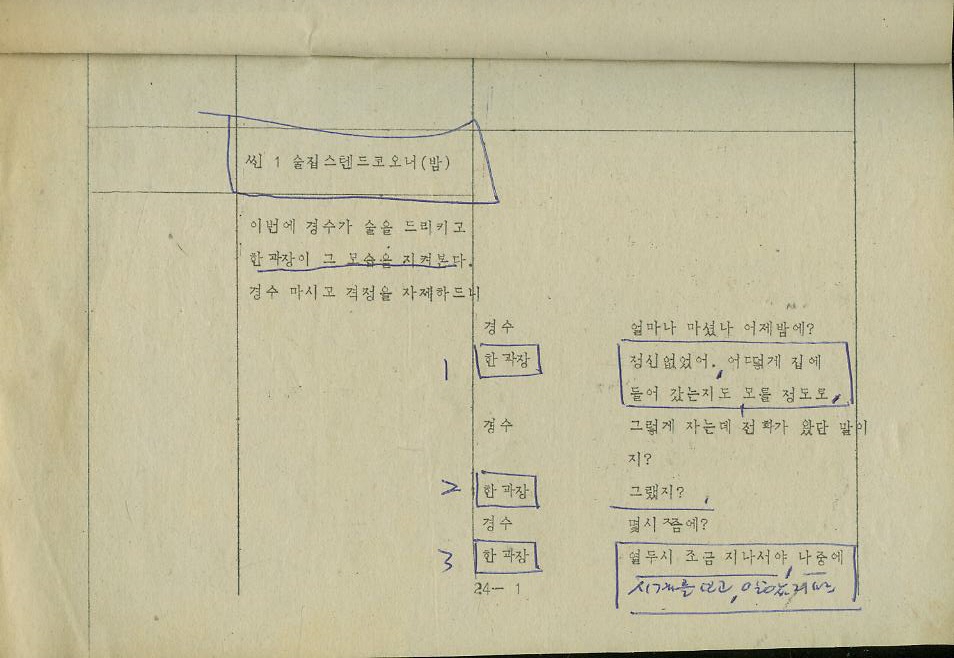 씬 1 술집스텐드코오너(밤)
이번에 경수가 술을 드리키고
한 과장이 그 모습을 지켜본다.
경수 마시고 격정을 자제하드니
경수 얼마나 마셨나 어제밤에?
1 한 과장 정신없었어. 어떻게 집에
들어 갔는지도 모를 정도로,
경수 그렇게 자는데 전화가 왔단 말이
지?
2 한 과장 그랬지?
경수 몇시쯤에?
3 한 과장 열두시 조금 지나서야, 나중에
시계를 보고,
24- 1